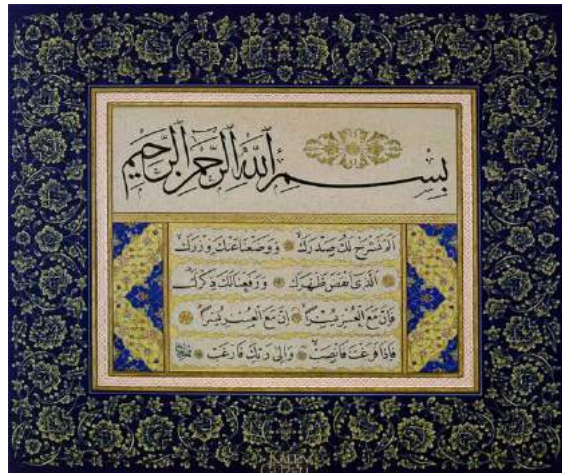 بِسْمِ اللّٰهِ الرَّحْمٰنِ الرَّحِيمِ
اَلَمْ نَشْرَحْ لَكَ صَدْرَكَ وَوَضَعْنَا عَنْكَ وِزْرَكَ
اَلَّذِى اَنْقَضَ ظَهْرَكَ وَرَفَعْنَا لَكَ ذِكْرَكَ
فَاِنَّ مَعَ الْعُسْرِ يُسْرًا اِنَّ مَعَ الْعُسْرِ يُسْرًا
فَاِذَا فَرَغْتَ فَانْصَبْ وَاِلٰى رَبِّكَ فَارْغَبْ
KALEM